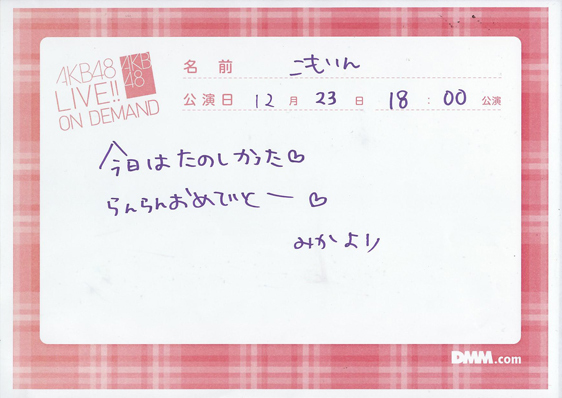 AKB48
LIVE!!
ON DEMAND
AKB
48
名前 こもりん
公演日 12月 23日 18:00 公演
今日はたのしかった♡
らんらんおめでとー ♡
みかより
DMM.com